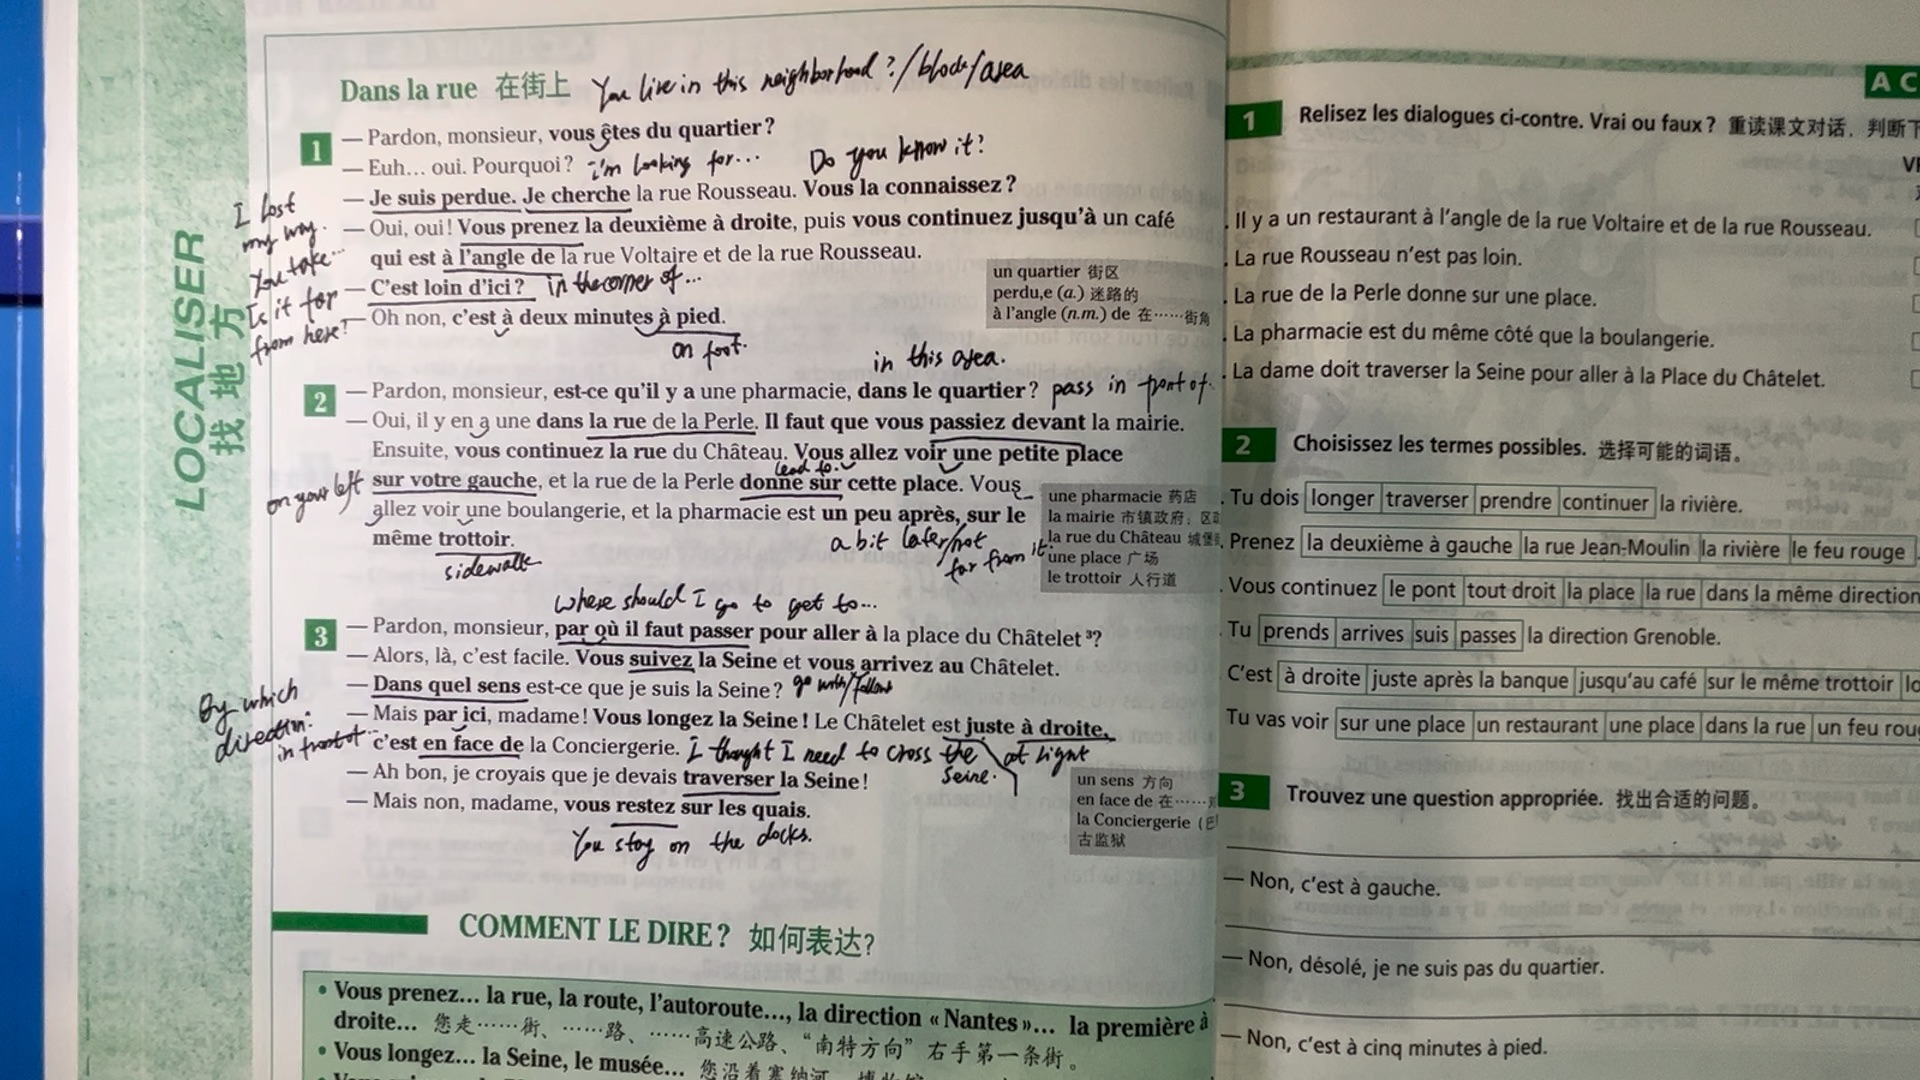 LOCALISER
找地方
Dans la rue 在街上 You live in this neighborhood?/block/area
1 — Pardon, monsieur, vous êtes du quartier?
— Euh... oui. Pourquoi? i'm looking for... Do you know it?
— Je suis perdue. Je cherche la rue Rousseau. Vous la connaissez?
I lost
my way.
— Oui, oui! Vous prenez la deuxième à droite, puis vous continuez jusqu'à un café
You take...
qui est à l'angle de la rue Voltaire et de la rue Rousseau.
— C'est loin d'ici? in the corner of...
Is it far
from here?
— Oh non, c'est à deux minutes à pied.
on foot.
un quartier 街区
perdu,e (a.) 迷路的
à l'angle (n.m.) de 在……街角
in this area.
2 — Pardon, monsieur, est-ce qu'il y a une pharmacie, dans le quartier? pass in front of.
— Oui, il y en a une dans la rue de la Perle. Il faut que vous passiez devant la mairie.
Ensuite, vous continuez la rue du Château. Vous allez voir une petite place
lead to.
on your left
sur votre gauche, et la rue de la Perle donne sur cette place. Vous
allez voir une boulangerie, et la pharmacie est un peu après, sur le
même trottoir.
a bit later/not
far from it.
sidewalk
une pharmacie 药店
la mairie 市镇政府；区
la rue du Château 城堡
une place 广场
le trottoir 人行道
where should I go to get to...
3 — Pardon, monsieur, par où il faut passer pour aller à la place du Châtelet ³?
— Alors, là, c'est facile. Vous suivez la Seine et vous arrivez au Châtelet.
— Dans quel sens est-ce que je suis la Seine? go with/follow
By which
direction.
— Mais par ici, madame! Vous longez la Seine! Le Châtelet est juste à droite,
in front of...
c'est en face de la Conciergerie. I thought I need to cross the
Seine.
at right
— Ah bon, je croyais que je devais traverser la Seine!
— Mais non, madame, vous restez sur les quais.
You stay on the docks.
un sens 方向
en face de 在……
la Conciergerie (巴
古监狱
COMMENT LE DIRE? 如何表达?
• Vous prenez... la rue, la route, l'autoroute..., la direction « Nantes »... la première à
droite... 您走……街、……路、……高速公路、“南特方向”右手第一条街。
• Vous longez... la Seine, le musée... 您沿着塞纳河、博物馆
A C
1 Relisez les dialogues ci-contre. Vrai ou faux? 重读课文对话，判断下
. Il y a un restaurant à l'angle de la rue Voltaire et de la rue Rousseau.
. La rue Rousseau n'est pas loin.
. La rue de la Perle donne sur une place.
. La pharmacie est du même côté que la boulangerie.
. La dame doit traverser la Seine pour aller à la Place du Châtelet.
2 Choisissez les termes possibles. 选择可能的词语。
. Tu dois longer traverser prendre continuer la rivière.
. Prenez la deuxième à gauche la rue Jean-Moulin la rivière le feu rouge
. Vous continuez le pont tout droit la place la rue dans la même direction
. Tu prends arrives suis passes la direction Grenoble.
C'est à droite juste après la banque jusqu'au café sur le même trottoir lo
Tu vas voir sur une place un restaurant une place dans la rue un feu rou
3 Trouvez une question appropriée. 找出合适的问题。
— Non, c'est à gauche.
— Non, désolé, je ne suis pas du quartier.
— Non, c'est à cinq minutes à pied.